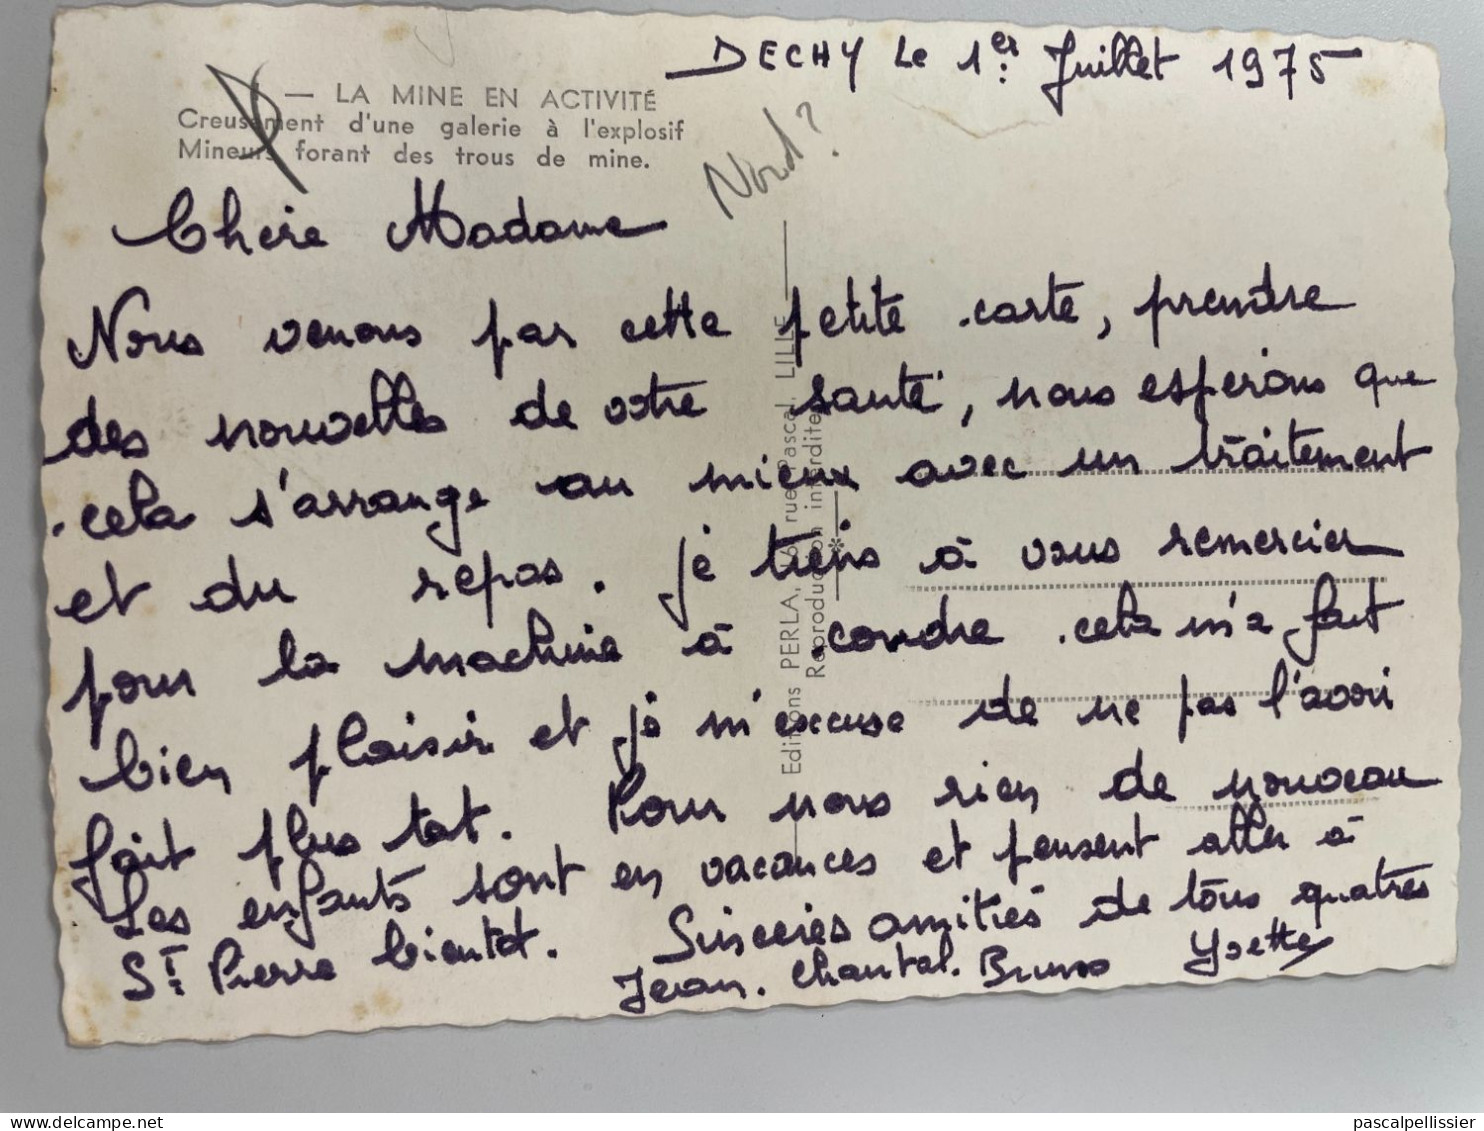 DECHY Le 1er: Juillet 1975
— LA MINE EN ACTIVITÉ
Creusement d'une galerie à l'explosif
Mineurs forant des trous de mine.
Nord?
Chère Madame
Nous venons par cette petite carte, prendre
des nouvelles de votre santé, nous espérons que
cela s'arrange au mieux avec un traitement
et du repos. Je tiens à vous remercier
pour la machine à coudre cela m'a fait
bien plaisir et je m'excuse de ne pas l'avoir
fait plus tot. Pour nous rien de nouveau
Les enfants sont en vacances et pensent aller à
St: Pierre bientot. Sinceres amitiés de tous quatres
Jean. Chantal. Bruno Yvette
Editions PERLA, rue Pascal, LILLE
Reproduction interdite
pascalpellissier